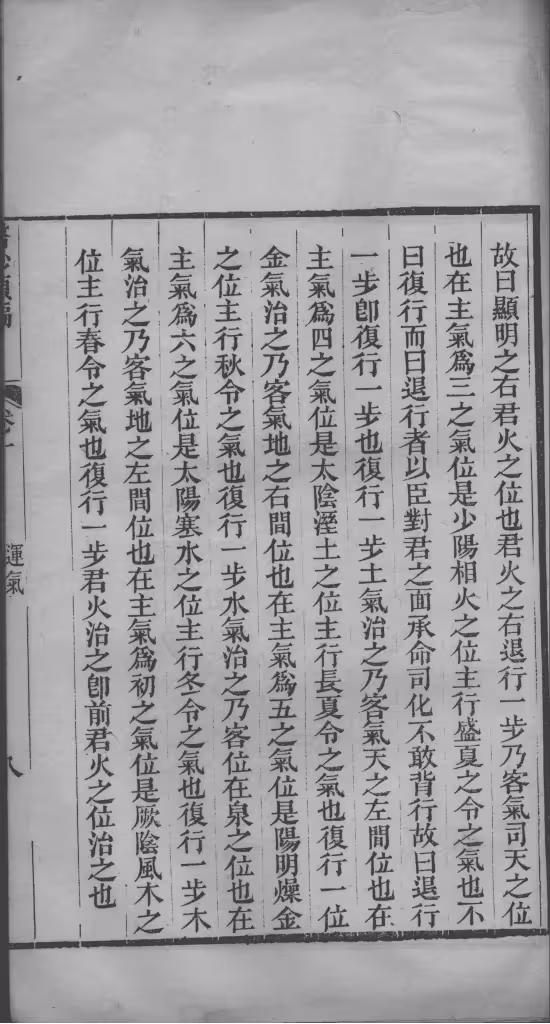 故曰顯明之右君火之位也君火之右退行一步乃客氣司天之位
也在主氣爲三之氣位是少陽相火之位主行盛夏之令之氣也不
曰復行而曰退行者以臣對君之面承命司化不敢背行故曰退行
一步卽復行一步也復行一步土氣治之乃客氣天之左間位也在
主氣爲四之氣位是太陰溼土之位主行長夏令之氣也復行一位
金氣治之乃客氣地之右間位也在主氣爲五之氣位是陽明燥金
之位主行秋令之氣也復行一步水氣治之乃客位在泉之位也在
主氣爲六之氣位是太陽寒水之位主行冬令之氣也復行一步木
氣治之乃客氣地之左間位也在主氣爲初之氣位是厥陰風木之
位主行春令之氣也復行一步君火治之卽前君火之位治之也
運氣
八